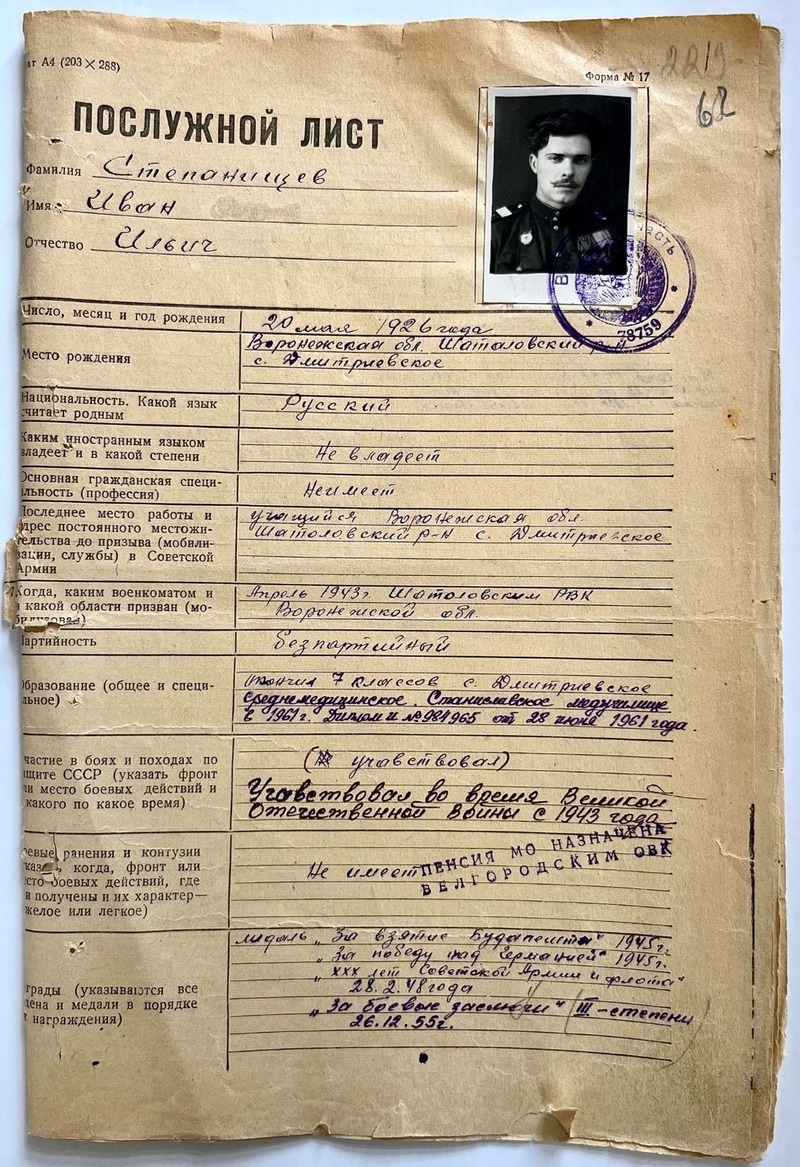 ат А4 (203 × 288)
Форма № 17
2219
62
ПОСЛУЖНОЙ ЛИСТ
Фамилия Степанищев
Имя Иван
Отчество Ильич
ЧАСТЬ
* 78759 *
Число, месяц и год рождения
20 мая 1926 года
Место рождения
Воронежская обл. Шаталовский р-н
с. Дмитриевское
Национальность. Какой язык
считает родным
Русский
Каким иностранным языком
владеет и в какой степени
Не владеет
Основная гражданская специ-
льность (профессия)
Неимеет
Последнее место работы и
дрес постоянного местожи-
тельства до призыва (мобили-
зации, службы) в Советской
Армии
учащийся Воронежская обл.
Шаталовский р-н с. Дмитриевское
Когда, каким военкоматом и
в какой области призван (мо-
билизован)
Апрель 1943г. Шаталовским РВК
Воронежской обл.
партийность
безпартийный
бразование (общее и специ-
льное)
окончил 7 классов с. Дмитриевское
Среднемедицинское. Станиславское медучилище
в 1961г. Диплом № 984965 от 28 июня 1961 года.
частие в боях и походах по
ащите СССР (указать фронт
ли место боевых действий и
какого по какое время)
учавствовал)
Учавствовал во время Великой
Отечественной Войны с 1943 года
оевые ранения и контузии
когда, фронт или
сто боевых действий, где
и получены и их характер—
желое или легкое)
Не имеет
ПЕНСИЯ МО НАЗНАЧЕНА
БЕЛГОРОДСКИМ ОВК
грады (указываются все
дена и медали в порядке
награждения)
медаль „За взятие Будапешта" 1945г.
„За победу над Германией" 1945г.
„XXX лет Советской Армии и флота"
28.2.48 года
„За боевые заслуги" III-степени
26.12.55г.